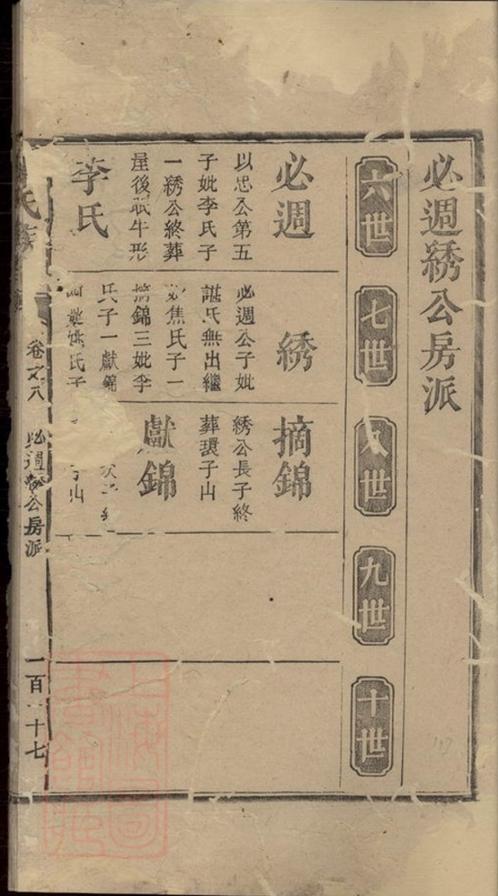 必週綉公房派
六世
七世
八世
九世
十世
必週
以忠公第五
子妣李氏子
一綉公終葬
屋後眠牛形
李氏
綉
必週公子妣
諶氏無出繼
焦氏子一
摘錦三妣李
氏子一獻錦
姚氏子
摘錦
綉公長子終
葬環子山
獻錦
子山
氏族
卷之八
必週綉公房派
一百一十七